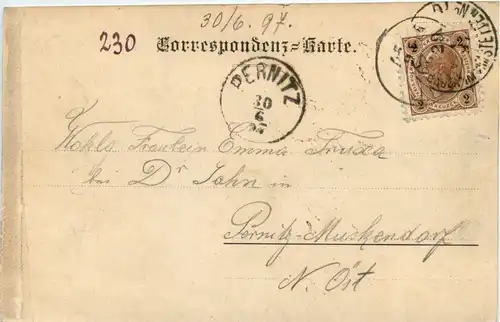 30/6. 97.
230
Correspondenz-Karte.
PERNITZ
30
6
97
2 2
Wohlg Fräulein Emma
bei Dr Jahn in
Pernitz-Muckendorf
N. Öst